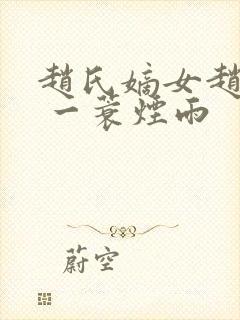 趙氏嫡女趙
一蓑煙雨
蔚空